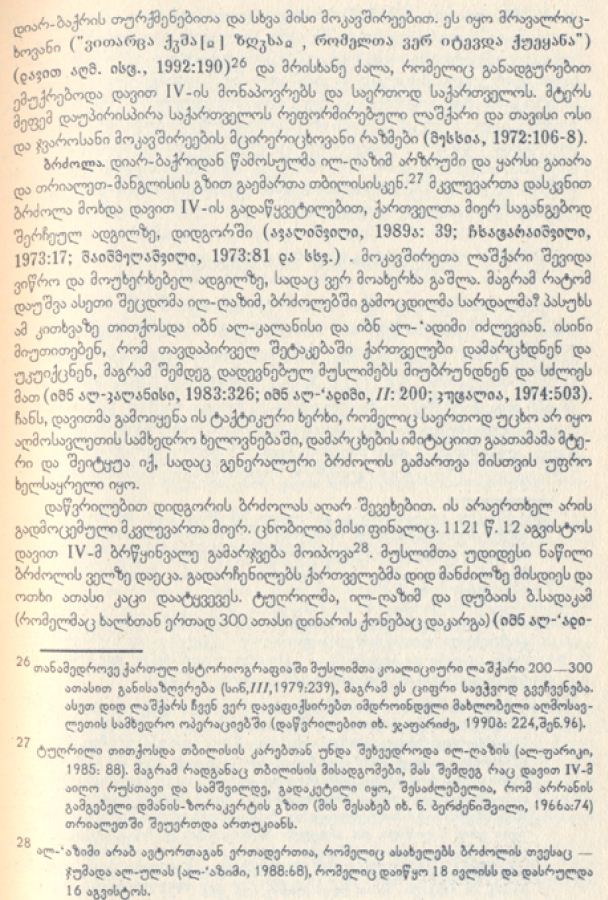 დიარ-ბაქრის თურქმენებითა და სხვა მისი მოკავშირეებით. ეს იყო მრავალრიც-
ხოვანი ("ვითარცა ქჳშა[ჲ] ზღჳსაჲ , რომელთა ვერ იტევდა ქუეყანა")
(დავით აღმ. ისტ., 1992:190)26 და მრისხანე ძალა, რომელიც განადგურებით
ემუქრებოდა დავით IV-ის მონაპოვრებს და საერთოდ საქართველოს. მტერს
მეფემ დაუპირისპირა საქართველოს რეფორმირებული ლაშქარი და თავისი ოსი
და ჯვაროსანი მოკავშირეების მცირერიცხოვანი რაზმები (მესხია, 1972:106-8).
ბრძოლა. დიარ-ბაქრიდან წამოსულმა ილ-ღაზიმ არზრუმი და ყარსი გაიარა
და თრიალეთ-მანგლისის გზით გაემართა თბილისისკენ.27 მკვლევართა დასკვნით
ბრძოლა მოხდა დავით IV-ის გადაწყვეტილებით, ქართველთა მიერ საგანგებოდ
შერჩეულ ადგილზე, დიდგორში (ავალიშვილი, 1989ა: 39; ჩხატარაიშვილი,
1973:17; შაიშმელაშვილი, 1973:81 და სხვ.) . მოკავშირეთა ლაშქარი შევიდა
ვიწრო და მოუხერხებელ ადგილზე, სადაც ვერ მოახერხა გაშლა. მაგრამ რატომ
დაუშვა ასეთი შეცდომა ილ-ღაზიმ, ბრძოლებში გამოცდილმა სარდალმა? პასუხს
ამ კითხვაზე თითქოსდა იბნ ალ-კალანისი და იბნ ალ-‘ადიმი იძლევიან. ისინი
მიუთითებენ, რომ თავდაპირველ შეტაკებაში ქართველები დამარცხდნენ და
უკუიქცნენ, მაგრამ შემდეგ დადევნებულ მუსლიმებს მიუბრუნდნენ და სძლიეს
მათ (იბნ ალ-კალანისი, 1983:326; იბნ ალ-‘ადიმი, II: 200; ჯუფალია, 1974:503).
ჩანს, დავითმა გამოიყენა ის ტაქტიკური ხერხი, რომელიც საერთოდ უცხო არ იყო
აღმოსავლეთის სამხედრო ხელოვნებაში, დამარცხების იმიტაციით გაათამამა მტე-
რი და შეიტყუა იქ, სადაც გენერალური ბრძოლის გამართვა მისთვის უფრო
ხელსაყრელი იყო.
დაწვრილებით დიდგორის ბრძოლას აღარ შევეხებით. ის არაერთხელ არის
გადმოცემული მკვლევართა მიერ. ცნობილია მისი ფინალიც. 1121 წ. 12 აგვისტოს
დავით IV-მ ბრწყინვალე გამარჯვება მოიპოვა28. მუსლიმთა უდიდესი ნაწილი
ბრძოლის ველზე დაეცა. გადარჩენილებს ქართველებმა დიდ მანძილზე მისდიეს და
ოთხი ათასი კაცი დაატყვევეს. ტუღრილმა, ილ-ღაზიმ და დუბაის ბ.სადაკამ
(რომელმაც ხალხთან ერთად 300 ათასი დინარის ქონებაც დაკარგა) (იბნ ალ-‘ადი-
26 თანამედროვე ქართულ ისტორიოგრაფიაში მუსლიმთა კოალიციური ლაშქარი 200—300
ათასით განისაზღვრება (სინ,III,1979:239), მაგრამ ეს ციფრი საეჭვოდ გვეჩვენება.
ასეთ დიდ ლაშქარს ჩვენ ვერ დავაფიქსირებთ იმდროინდელი მახლობელი აღმოსავ-
ლეთის სამხედრო ოპერაციებში (დაწვრილებით იხ. ჯაფარიძე, 1990ბ: 224,შენ.96).
27 ტუღრილი თითქოსდა თბილისის კარებთან უნდა შეხვედროდა ილ-ღაზის (ალ-ფარიკი,
1985: 88). მაგრამ რადგანაც თბილისის მისადგომები, მას შემდეგ რაც დავით IV-მ
აიღო რუსთავი და სამშვილდე, გადაკეტილი იყო, შესაძლებელია, რომ არრანის
გამგებელი დმანის-ზორაკერტის გზით (მის შესახებ იხ. ნ. ბერძენიშვილი, 1966ა:74)
თრიალეთში შეუერთდა ართუკიანს.
28 ალ-‘აზიმი არაბ ავტორთაგან ერთადერთია, რომელიც ასახელებს ბრძოლის თვესაც —
ჯუმადა ალ-ულას (ალ-‘აზიმი, 1988:68), რომელიც დაიწყო 18 ივლისს და დასრულდა
16 აგვისტოს.